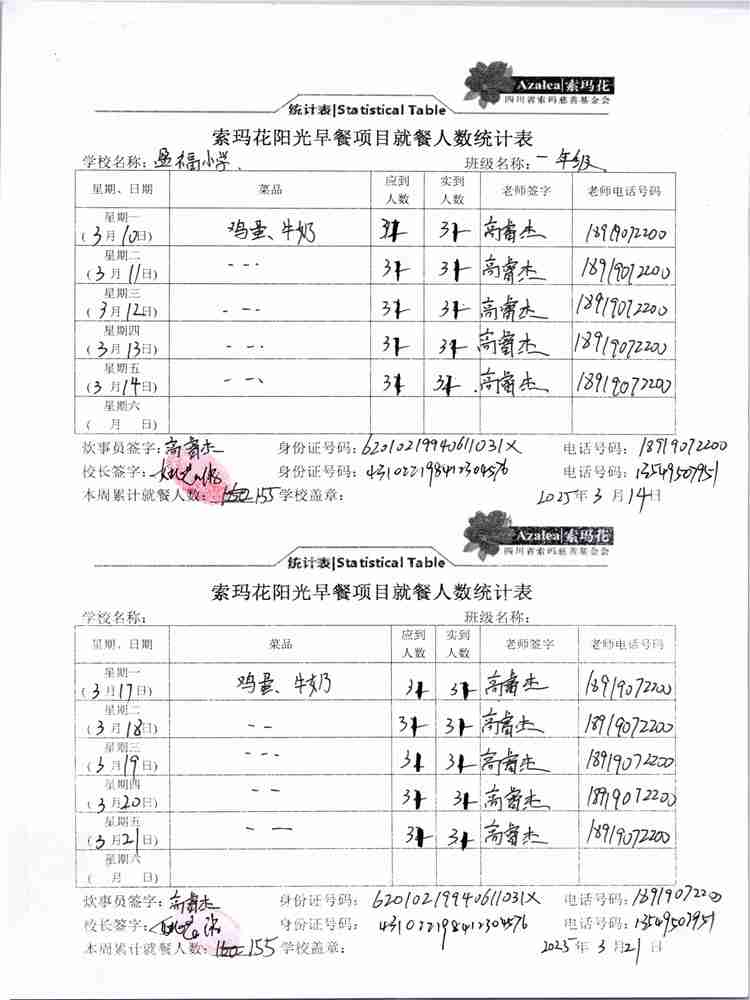 Azalea|索玛花
四川省索玛慈善基金会
统计表|Statistical Table
索玛花阳光早餐项目就餐人数统计表
学校名称：墨福小学 班级名称：一年级
星期、日期 菜品 应到人数 实到人数 老师签字 老师电话号码
星期一（3月10日） 鸡蛋、牛奶 31 31 高睿杰 18919072200
星期二（3月11日） - - · 31 31 高睿杰 18919072200
星期三（3月12日） - - · 31 31 高睿杰 18919072200
星期四（3月13日） - - · 31 31 高睿杰 18919072200
星期五（3月14日） - - 、 31 31 高睿杰 18919072200
星期六（ 月 日）
炊事员签字：高睿杰 身份证号码：62010219940611031X 电话号码：18919072200
校长签字： 身份证号码：431022198412304576 电话号码：13549507951
本周累计就餐人数：155 学校盖章： 2025年3月14日
Azalea|索玛花
四川省索玛慈善基金会
统计表|Statistical Table
索玛花阳光早餐项目就餐人数统计表
学校名称： 班级名称：
星期、日期 菜品 应到人数 实到人数 老师签字 老师电话号码
星期一（3月17日） 鸡蛋、牛奶 31 31 高睿杰 18919072200
星期二（3月18日） - - 31 31 高睿杰 18919072200
星期三（3月19日） - - - 31 31 高睿杰 18919072200
星期四（3月20日） - - 31 31 高睿杰 18919072200
星期五（3月21日） - - 31 31 高睿杰 18919072200
星期六（ 月 日）
炊事员签字：高睿杰 身份证号码：62010219940611031X 电话号码：18919072200
校长签字： 身份证号码：431022198412304576 电话号码：13549507951
本周累计就餐人数：155 学校盖章： 2025年3月21日